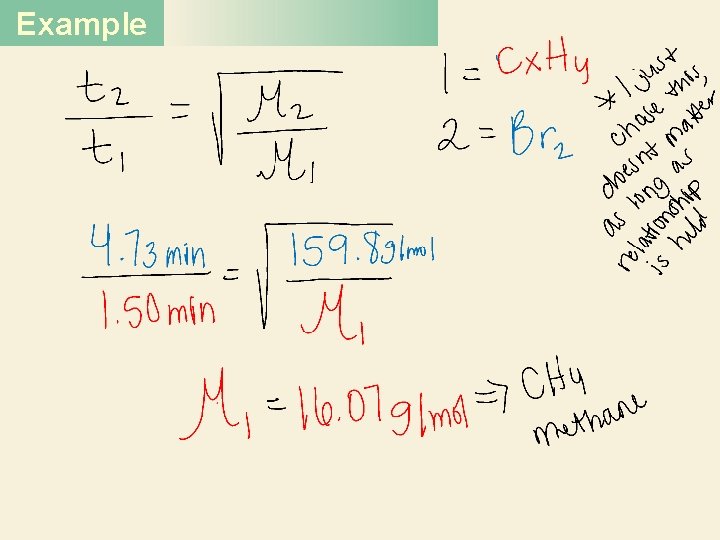 Example
t₂/t₁ = √(M₂/M₁)
1 = CxHy
2 = Br₂
* I just
chose this,
doesnt matter
as long as
relationship
is held
4.73 min/1.50 min = √(159.8 g/mol/M₁)
M₁ = 16.07 g/mol => CH4
methane